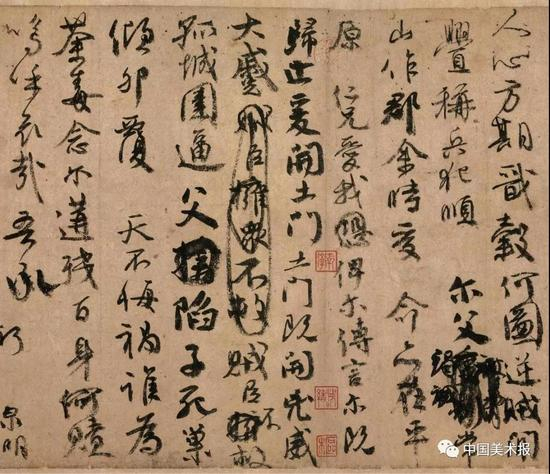 人心方期戩穀何圖逆賊閒
釁稱兵犯順 爾父竭誠常
山作郡余時受 命亦在平
原 仁兄愛我恐俾爾傳言爾既
歸止爰開土門土門既開兇威
大蹙賊臣擁眾不救賊臣不擁救
孤城圍逼父擒陷子死巢
傾卵覆 天不悔禍誰為
荼毒念爾遘殘百身何贖
嗚呼哀哉吾承
泉明
中国美术报